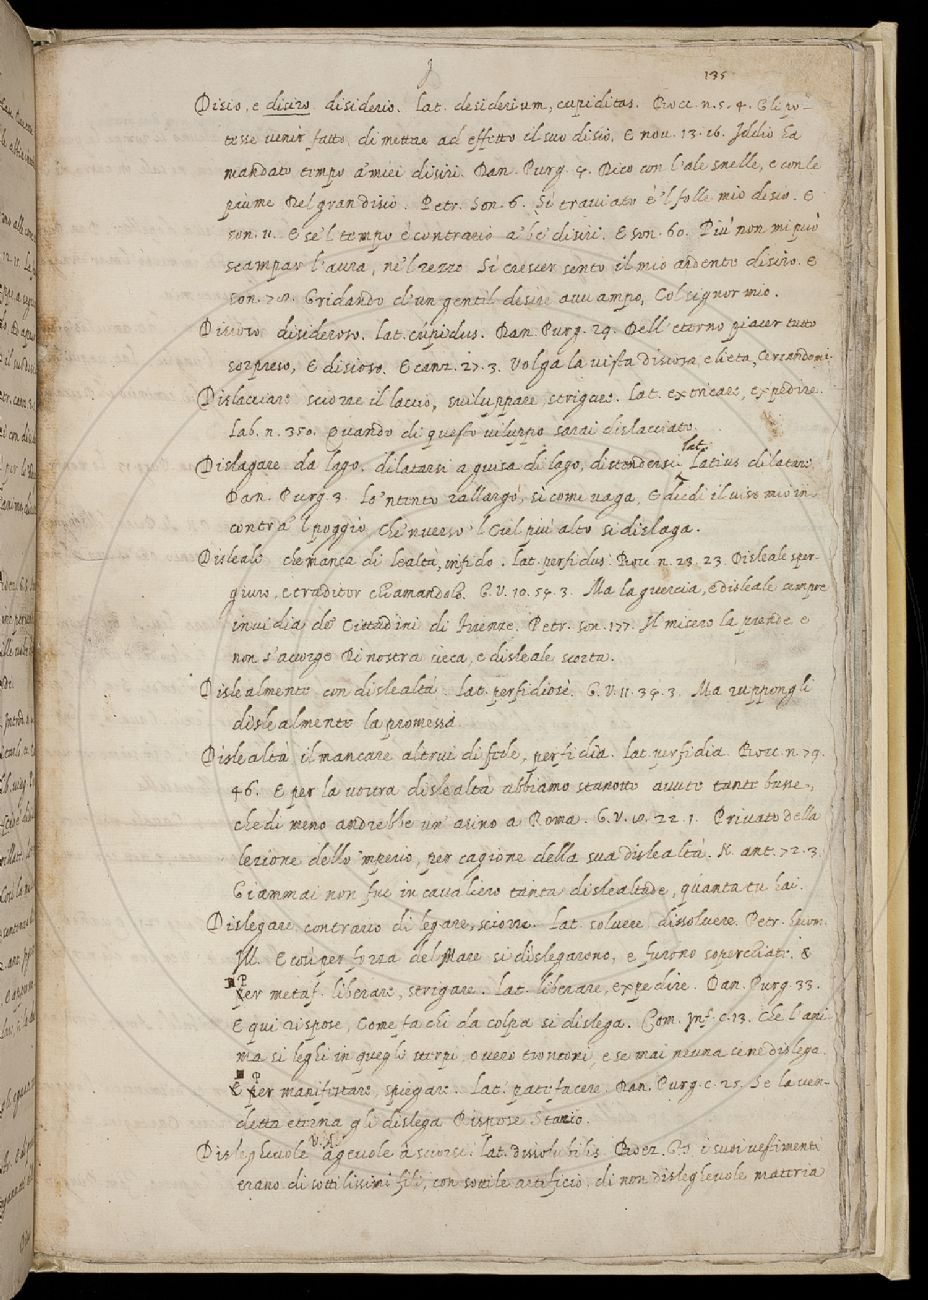 135
Disio, e disiro. disiderio. lat. desiderium, cupiditas. Bocc. n. 5. 4. Gli po-
tesse venir fatto, di mettere ad effetto il suo disio. E nov. 13. 16. Iddio ha
mandato tempo a' miei disiri. Dan. Purg. 4. Dico con l'ale snelle, e con le
piume Del gran disio. Petr. Son. 6. Sì traviato è 'l folle mio desio. E
son. 11. E se 'l tempo è contrario a be' disiri. E son. 60. Più non mi può
scampar l'aura, nè 'l rezzo Sì crescer sento il mio ardente disiro. E
son. Gridando d'un gentil desire avvampo, Col signor mio.
Disioso. disideroso. lat. cúpidus. Dan. Purg. 29. Dell' eterno piacer tutto
sospeso, E disioso. E canz. 27. 3. Volga la vista disiosa, e lieta, Cercandomi.
Dislacciare sciorre il laccio, sviluppare, strigare. lat. extricare, expedire.
Lab. n. 350. Quando di questo viluppo sarai dislacciato.
Dislagare da lago. dilatarsi a guisa di lago, distendersi. lat. Latius dilatari
Dan. Purg. 3. Lo 'ntento rallargò, sì come vaga, E diedi il viso mio in-
contra 'l poggio, Che 'nverso 'l Ciel più alto si dislaga.
Disleale che manca di lealtà, infido. lat. perfidus. Bocc. n. 23. 23. Disleale sper-
giuro, e traditor chiamandolo. G. V. 10. 54. 3. Ma la guercia, e disleale sempre
invidia de' Cittadini di Firenze. Petr. son. 177. Il misero la prende e
non s'accorge Di nostra cieca, e disleale scorta.
Dislealmente con dislealtà. lat. perfidiosè. G. V. 11. 34. 3. Ma ruppongli
dislealmente la promessa
Dislealtà il mancare altrui di fede, perfidia. lat. perfidia. Bocc. n. 79.
46. E per la vostra dislealtà abbiamo stanotte avute tante busse,
che di meno andrebbe un' asino a Roma. G. V. 10. 22. 1. Privato della
lezione dello 'mperio, per cagione della sua dislealtà. N. ant. 72. 3.
Giammai non fue in cavaliero tanta dislealtade, quanta tu hai.
Dislegare. contrario di legare, sciorre. lat. solvere, dissolvere. Petr. huom.
Ill. E così per forza del Mare si dislegarono, e furono soperchiati. &
Per metaf. liberare, strigare. lat. liberare, expedire. Dan. Purg. 33.
E qui rispose, Come fa chi da colpa si dislega. Com. Inf. c. 13. Che l'ani-
ma si leghi in quegli sterpi, o vero tronconi, e se mai neuna se ne dislega.
E per manifestare, spiegare. lat. patefacere. Dan. Purg. c. 25. Se la ven-
detta eterna gli dislega Rispose Stazio.
Disleghevole V. A. agevole a sciorsi. lat. dissolubilis. Boez. i suoi vestimenti
erano di sottilissimi fili, con sottile artificio, di non disleghevole materia